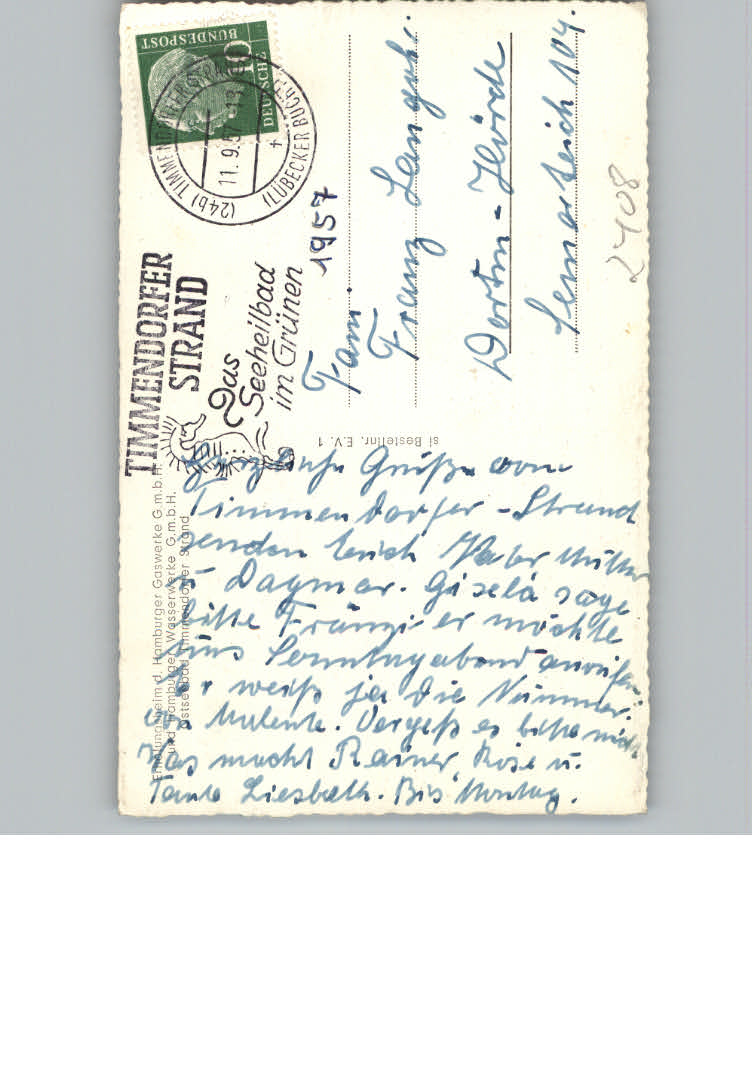 DEUTSCHE
BUNDESPOST
10
(24b) TIMMENDORFER STRAND
11.9.57
(LÜBECKER BUCHT)
TIMMENDORFER
STRAND
Das
Seeheilbad
im Grünen
1957
Fam.
Franz
Dortm - Hörde
104.
2408
si Bestellnr. E.V. 1
Erholungsheim d. Hamburger Gaswerke G.m.b.H.
und Hamburger Wasserwerke G.m.b.H.
Ostseebad Timmendorfer Strand
Herzliche Grüße vom
Timmendorfer - Strand
senden Euch Vater Mutter
u. Dagmar. Gisela sage
bitte Fränzi er möchte
uns Sonntagabend anrufen.
Er weiß ja die Nummer.
von Malente. Vergeß es bitte nicht
Was macht Rainer, Rose u.
Tante Liesbeth. Bis Montag.